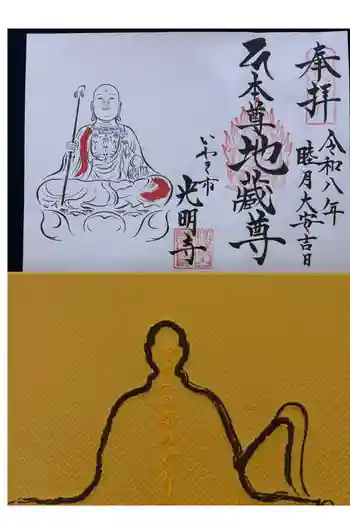 奉拝
令和八年
睦月大安吉日
本尊
地蔵尊
いわき市
光明寺